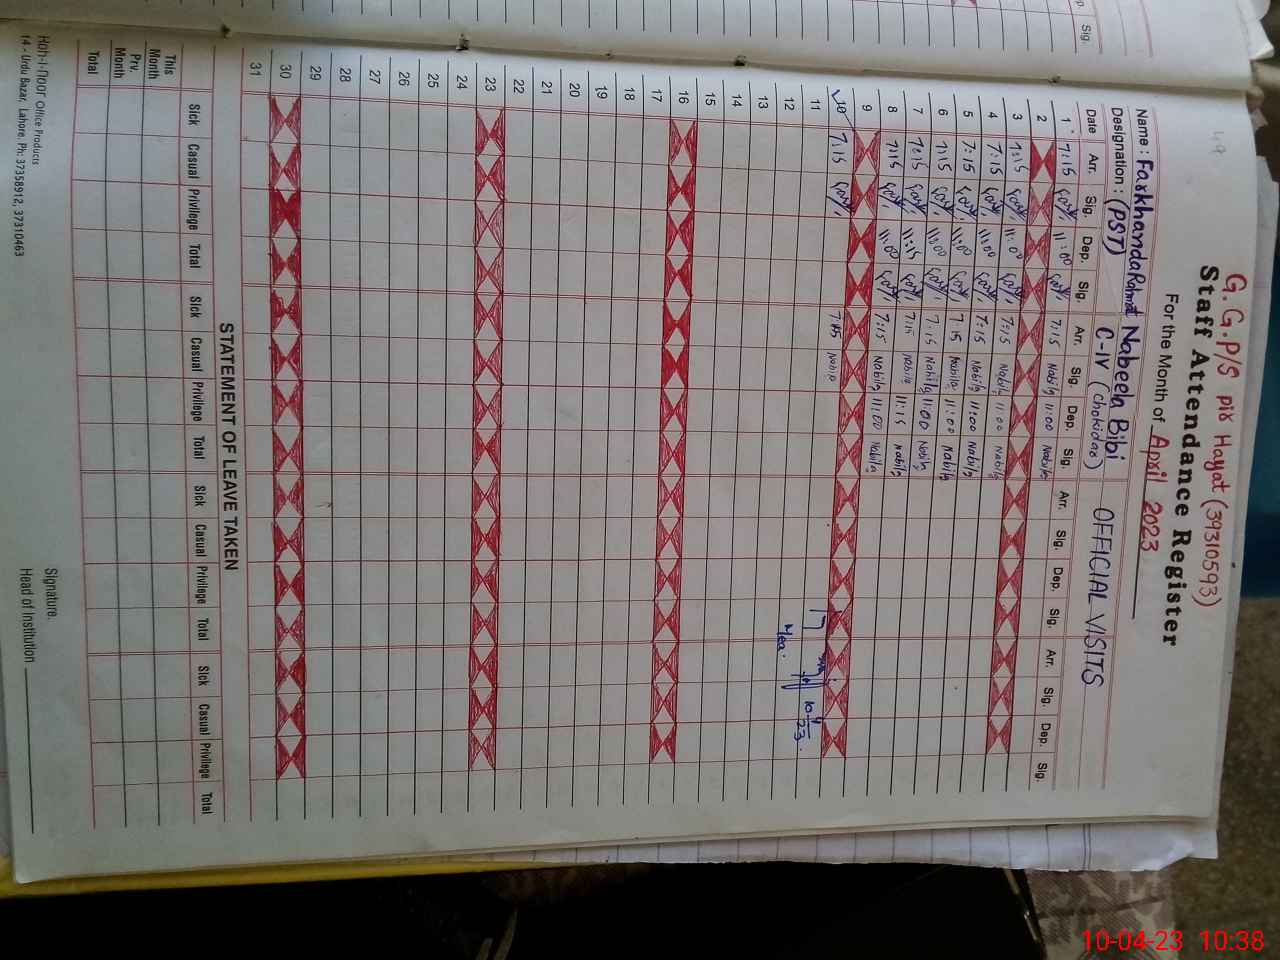 49
G.G.P/S pir Hayat (39310593)
Staff Attendance Register
For the Month of April 2023
Name : Farkhanda Rahmat Nabeela Bibi OFFICIAL VISITS
Designation : (PST) C-IV (Chokidar)
Date Arr. Sig. Dep. Sig. Arr. Sig. Dep. Sig. Arr. Sig. Dep. Sig. Arr. Sig. Dep. Sig.
1 7:15 11:00 7:15 Nabila 11:00 Nabila
2
3 7:15 11:00 7:15 Nabila 11:00 Nabila
4 7:15 11:00 7:15 Nabila 11:00 Nabila
5 7:15 11:00 7:15 Nabila 11:00 Nabila
6 7:15 11:00 7:15 Nabila 11:00 Nabila
7 7:15 11:15 7:15 Nabila 11:15 Nabila
8 7:15 11:00 7:15 Nabila 11:00 Nabila
9
10 7:15 7:15 Nabila
11
12
13
14
15
16
17
18
19
20
21
22
23
24
25
26
27
28
29
30
31
STATEMENT OF LEAVE TAKEN
Sick Casual Privilege Total Sick Casual Privilege Total Sick Casual Privilege Total Sick Casual Privilege Total
This Month
Prv. Month
Total
Signature.
Head of Institution
Office Products
14 - Urdu Bazar, Lahore. Ph: 37358912, 37310463
Sig.
10-04-23 10:38